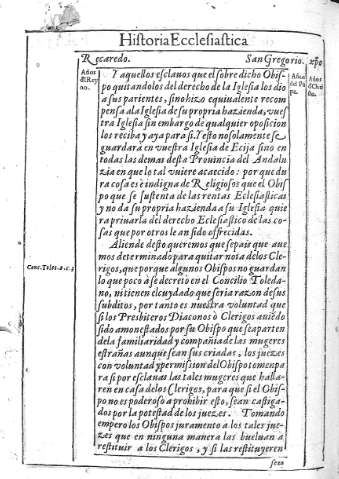 Historia Ecclesiastica
Recaredo. San Gregorio. xp̃o
Años dl Rey no.
Años del Pa pa.
Años d Chri sto.
Y aquellos esclauos que el sobre dicho Obis-
po quitandolos del derecho de la Iglesia los dio
a sus parientes, si no hizo equiualente recom
pensa a la Iglesia de su propria hazienda, vues
tra Iglesia sin embargo de qualquier oposicion
los reciba y aya para si. Y esto no solamente se
guardará en vuestra Iglesia de Ecija sino en
todas las demas desta Prouincia del Andalu
zia en que lo tal vuiere acaecido: por que du
ra cosa es è indigna de Religiosos que el Obis
po que se sustenta de las rentas Eclesiasticas
y no da su propria hazienda a su Iglesia quie
ra priuarla del derecho Eclesiastico de las co-
sas que por otros le an sido offrecidas.
Aliende desto queremos que sepais que aue
mos determinado para quitar nota de los Cle
rigos, que porque algunos Obispos no guardan
lo que poco à se decretò en el Concilio Toleda-
Conc. Tolet. 2. c. 3
no, ni tienen el cuydado que seria razon de sus
subditos, por tanto es nuestra voluntad que
si los Presbiteros Diaconos ò Clerigos auiẽdo
sido amonestados por su Obispo que se aparten
de la familiaridad y compañia de las mugeres
estrañas aunque sean sus criadas, los juezes
con voluntad y permission del Obispo tomen pa
ra si por esclauas las tales mugeres que halla-
ren en casa de los Clerigos, para que si el Obis-
po no es poderoso a prohibir esto, sean castiga-
dos por la potestad de los juezes. Tomando
empero los Obispos juramento a los tales jue-
zes que en ninguna manera las bueluan a
restituir a los Clerigos, y si las restituyeren